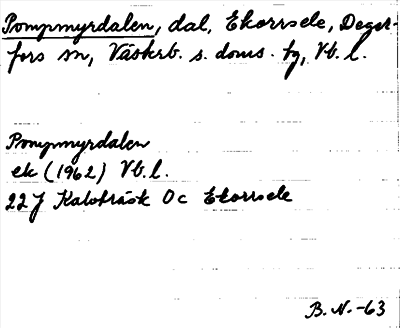 Pompmyrdalen, dal, Ekorrsele, Deger-
fors sn, Västerb. s. doms. tg, Vb. l.
Pompmyrdalen
ek (1962) Vb. l.
22 J Kalvträsk 0c Ekorrsele
B. N. -63